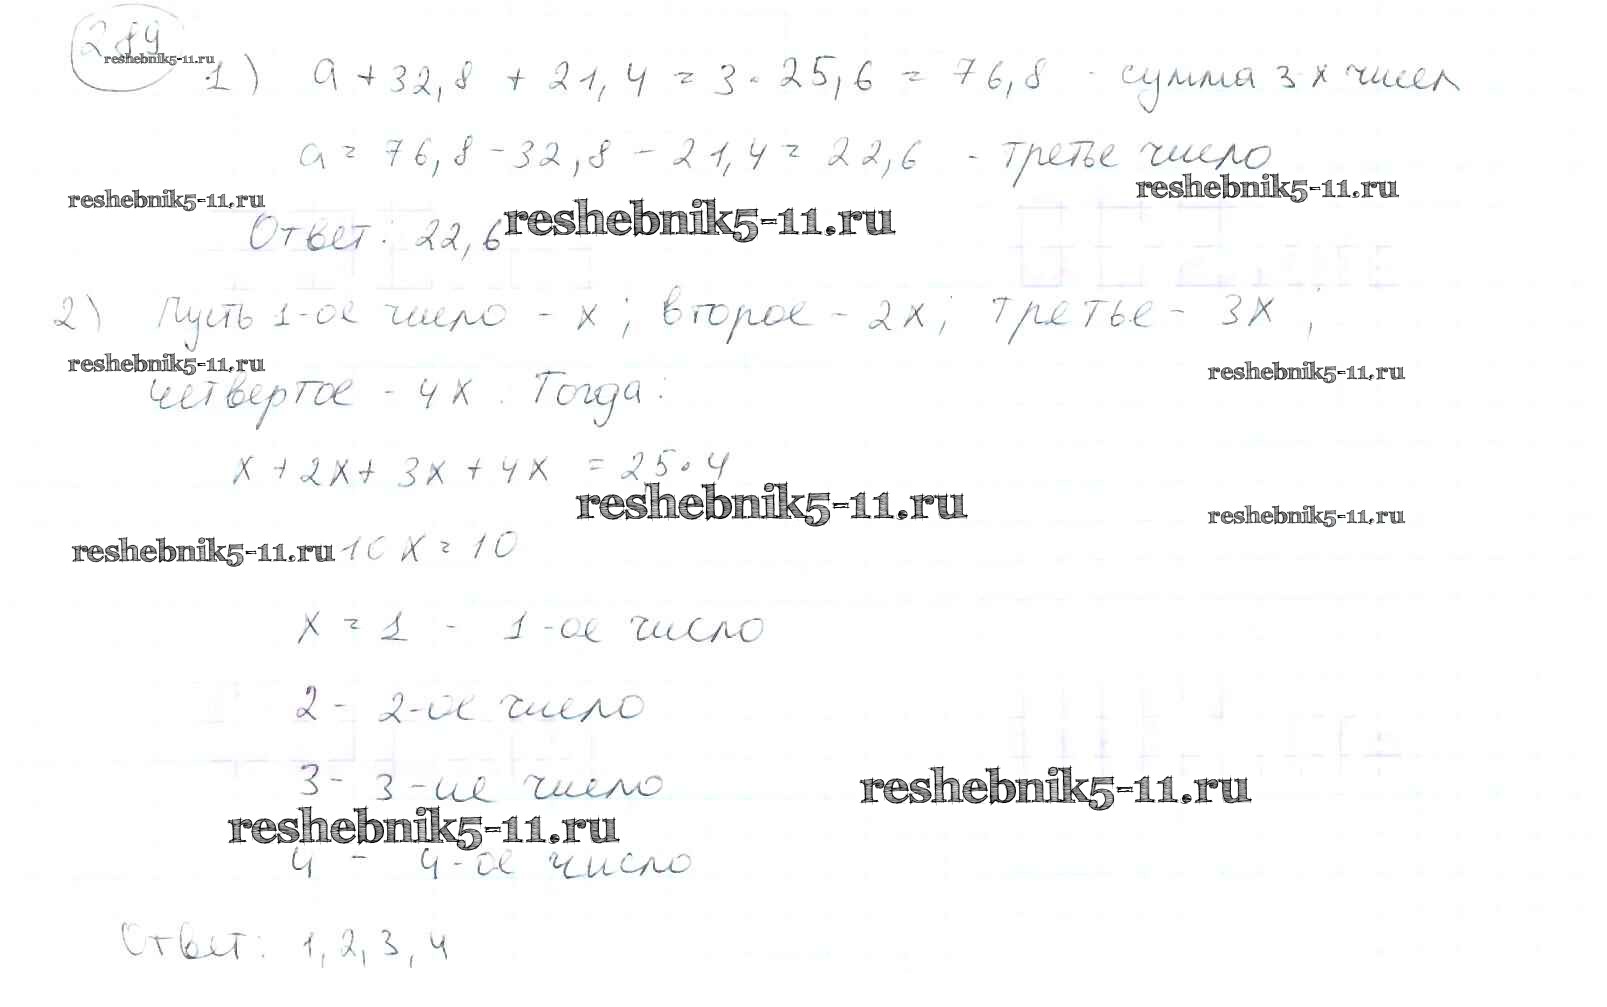 289
reshebnik5-11.ru
1) a + 32,8 + 21,4 = 3 · 25,6 = 76,8 - сумма 3-х чисел
a = 76,8 - 32,8 - 21,4 = 22,6 - третье число
reshebnik5-11.ru
reshebnik5-11.ru
Ответ: 22,6
reshebnik5-11.ru
2) Пусть 1-ое число - x; второе - 2x; третье - 3x;
reshebnik5-11.ru
reshebnik5-11.ru
четвертое - 4x. Тогда:
x + 2x + 3x + 4x = 25 · 4
reshebnik5-11.ru
reshebnik5-11.ru
reshebnik5-11.ru
10x = 10
x = 1 - 1-ое число
2 - 2-ое число
3 - 3-ие число
reshebnik5-11.ru
reshebnik5-11.ru
4 - 4-ое число
Ответ: 1, 2, 3, 4